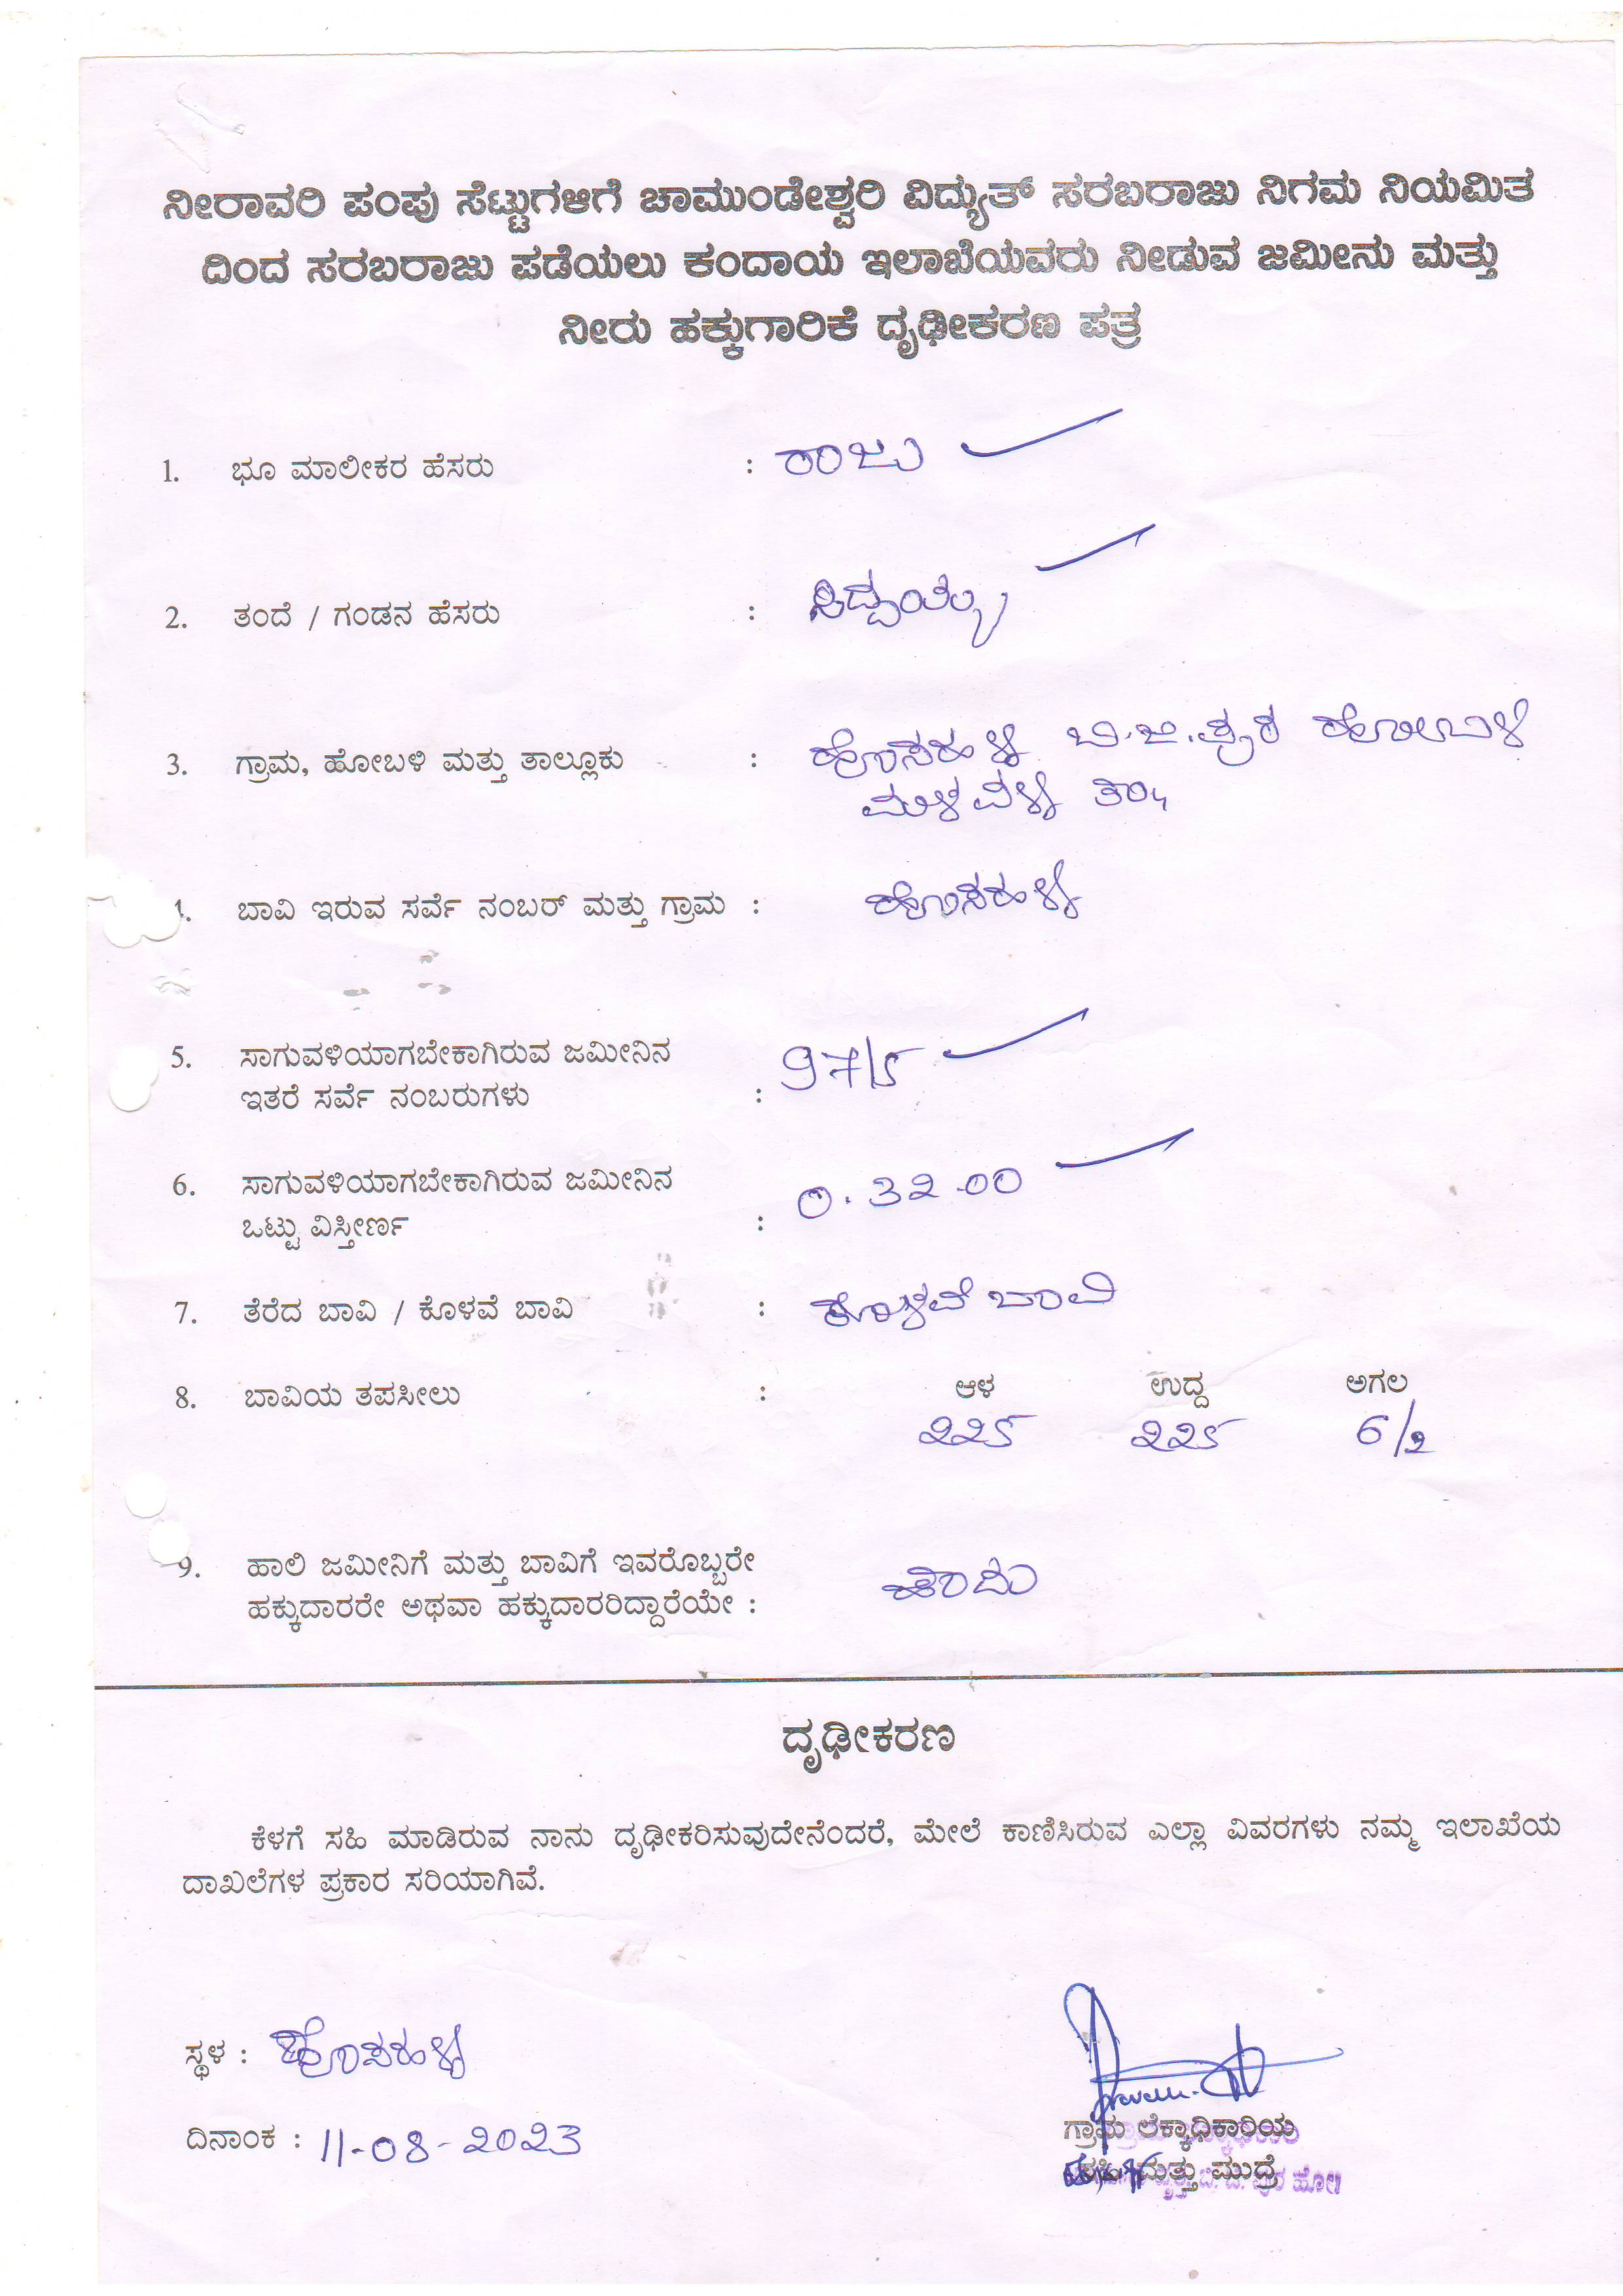 ನೀರಾವರಿ ಪಂಪು ಸೆಟ್ಟುಗಳಿಗೆ ಚಾಮುಂಡೇಶ್ವರಿ ವಿದ್ಯುತ್ ಸರಬರಾಜು ನಿಗಮ ನಿಯಮಿತ
ದಿಂದ ಸರಬರಾಜು ಪಡೆಯಲು ಕಂದಾಯ ಇಲಾಖೆಯವರು ನೀಡುವ ಜಮೀನು ಮತ್ತು
ನೀರು ಹಕ್ಕುಗಾರಿಕೆ ದೃಢೀಕರಣ ಪತ್ರ
1. ಭೂ ಮಾಲೀಕರ ಹೆಸರು : ರಾಜು
2. ತಂದೆ / ಗಂಡನ ಹೆಸರು :
3. ಗ್ರಾಮ, ಹೋಬಳಿ ಮತ್ತು ತಾಲ್ಲೂಕು : ಹೊಸಹಳ್ಳಿ ಬಿ.ಜಿ.ಪುರ ಹೋಬಳಿ
ಮಳವಳ್ಳಿ ತಾ॥
4. ಬಾವಿ ಇರುವ ಸರ್ವೆ ನಂಬರ್ ಮತ್ತು ಗ್ರಾಮ : ಹೊಸಹಳ್ಳಿ
5. ಸಾಗುವಳಿಯಾಗಬೇಕಾಗಿರುವ ಜಮೀನಿನ
ಇತರೆ ಸರ್ವೆ ನಂಬರುಗಳು : 97/5
6. ಸಾಗುವಳಿಯಾಗಬೇಕಾಗಿರುವ ಜಮೀನಿನ
ಒಟ್ಟು ವಿಸ್ತೀರ್ಣ : 0.32.00
7. ತೆರೆದ ಬಾವಿ / ಕೊಳವೆ ಬಾವಿ : ಕೊಳವೆ ಬಾವಿ
8. ಬಾವಿಯ ತಪಸೀಲು : ಆಳ ಉದ್ದ ಅಗಲ
225 225 6/2
9. ಹಾಲಿ ಜಮೀನಿಗೆ ಮತ್ತು ಬಾವಿಗೆ ಇವರೊಬ್ಬರೇ
ಹಕ್ಕುದಾರರೇ ಅಥವಾ ಹಕ್ಕುದಾರರಿದ್ದಾರೆಯೇ : ಹೌದು
ದೃಢೀಕರಣ
ಕೆಳಗೆ ಸಹಿ ಮಾಡಿರುವ ನಾನು ದೃಢೀಕರಿಸುವುದೇನೆಂದರೆ, ಮೇಲೆ ಕಾಣಿಸಿರುವ ಎಲ್ಲಾ ವಿವರಗಳು ನಮ್ಮ ಇಲಾಖೆಯ
ದಾಖಲೆಗಳ ಪ್ರಕಾರ ಸರಿಯಾಗಿವೆ.
ಸ್ಥಳ : ಹೊಸಹಳ್ಳಿ
ದಿನಾಂಕ : 11-08-2023
ಗ್ರಾಮ ಲೆಕ್ಕಾಧಿಕಾರಿಯ
ಸಹಿ ಮತ್ತು ಮುದ್ರೆ